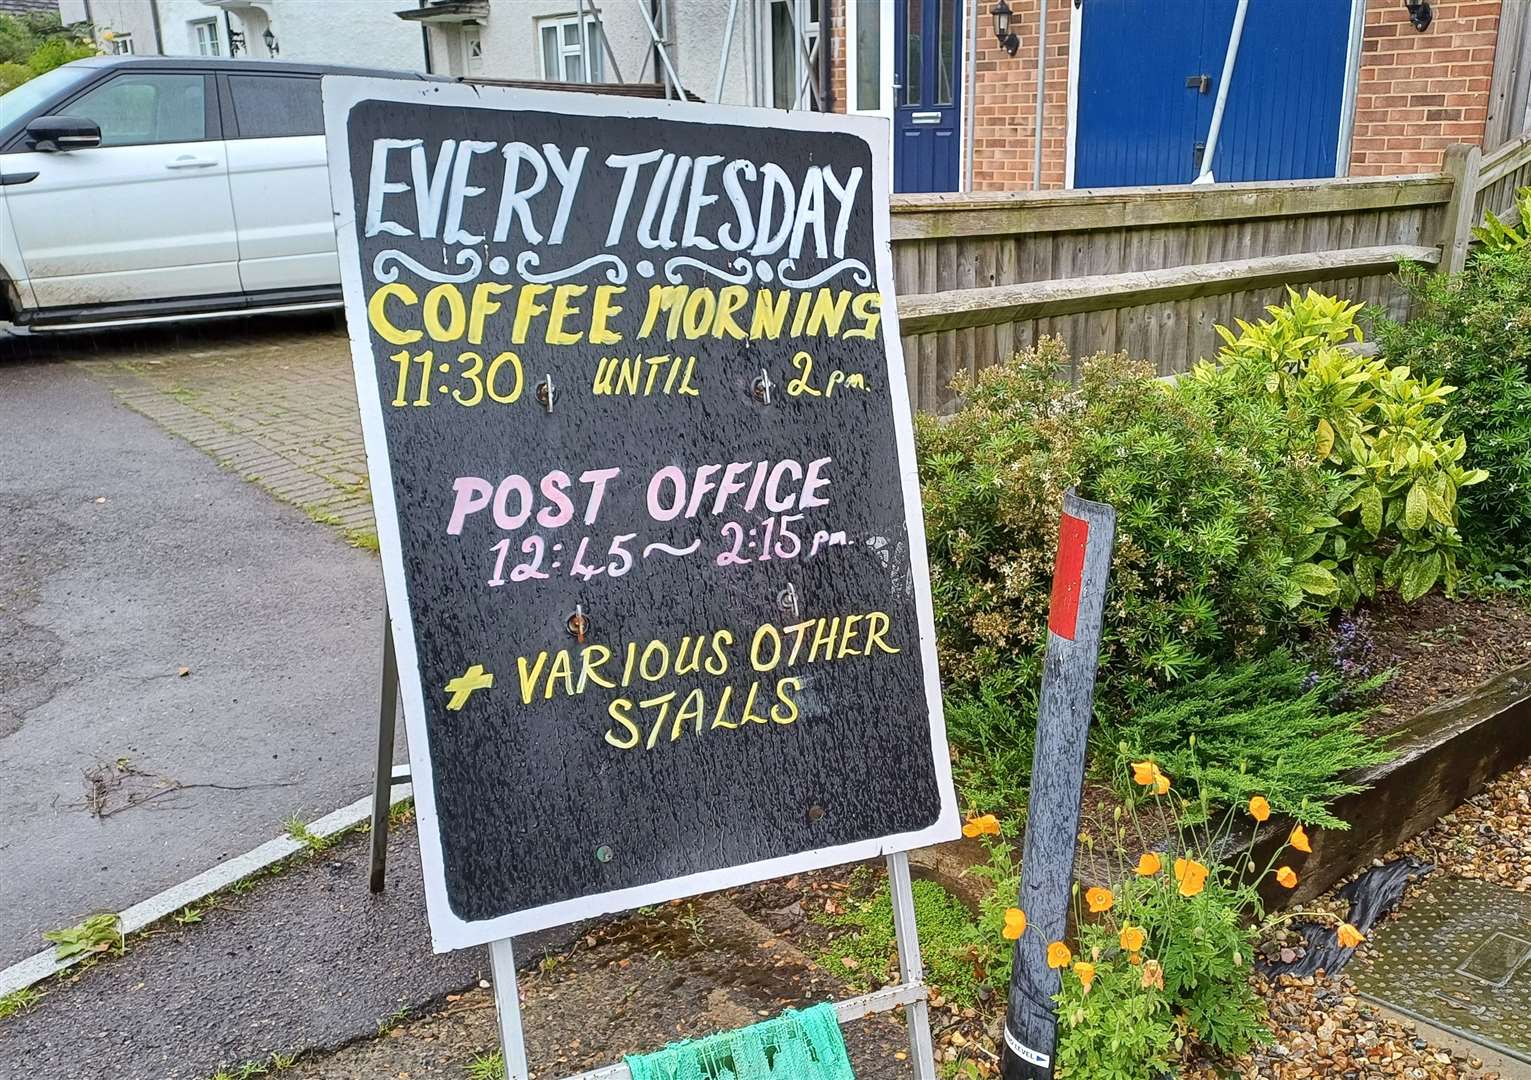 EVERY TUESDAY
COFFEE MORNING
11:30 UNTIL 2pm.
POST OFFICE
12:45~2:15pm.
+ VARIOUS OTHER
STALLS
LEVEL